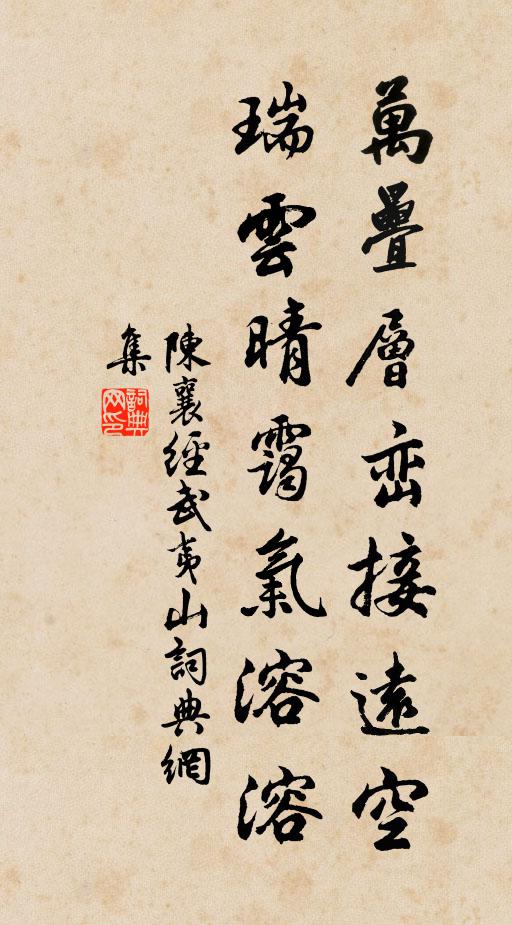 萬疊層峦接遠空
瑞雲晴靄氣溶溶
陳襄經武夷山詞典網
集
詞典網印